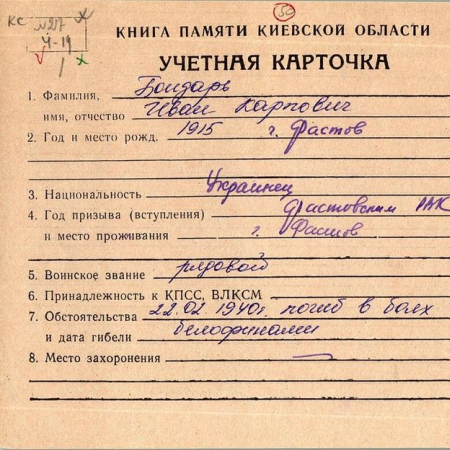 КС №27 Х
4-19
50
КНИГА ПАМЯТИ КИЕВСКОЙ ОБЛАСТИ
УЧЕТНАЯ КАРТОЧКА
1. Фамилия, Бондарь
имя, отчество Иван Карпович
2. Год и место рожд. 1915 г. Фастов
3. Национальность Украинец
4. Год призыва (вступления) Фастовским РВК
и место проживания г. Фастов
5. Воинское звание рядовой
6. Принадлежность к КПСС, ВЛКСМ
7. Обстоятельства 22.02 1940г. погиб в боях
и дата гибели белофинами
8. Место захоронения —